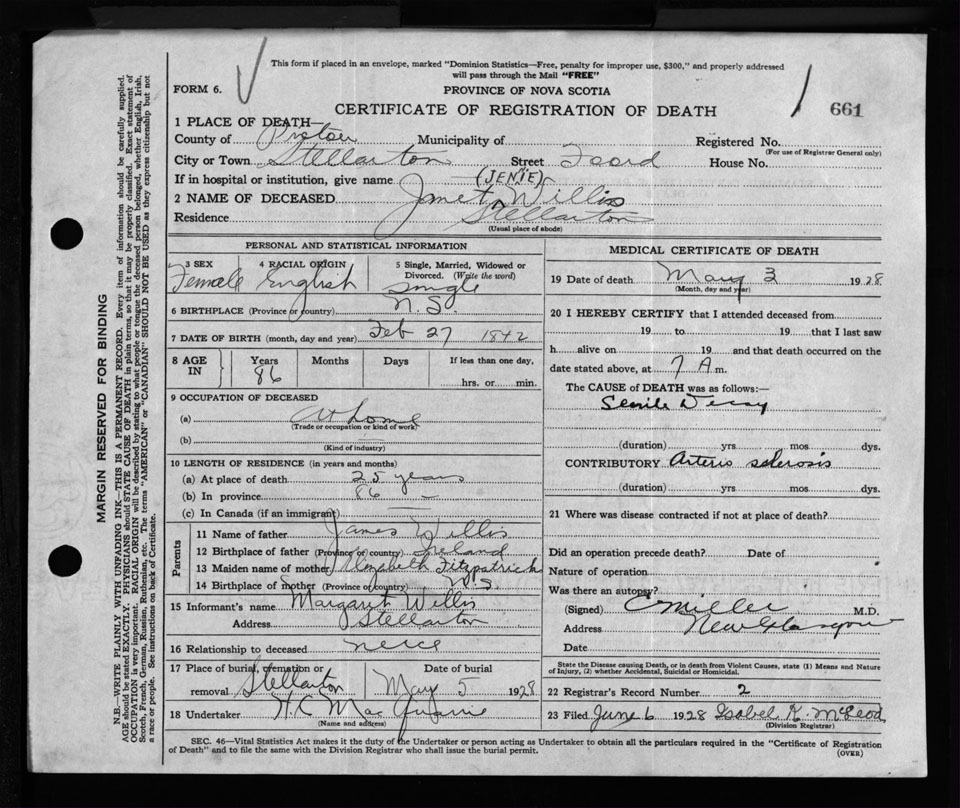 This form if placed in an envelope, marked "Dominion Statistics—Free, penalty for improper use, $300," and properly addressed
will pass through the Mail "FREE"
FORM 6.
PROVINCE OF NOVA SCOTIA
CERTIFICATE OF REGISTRATION OF DEATH
661
1 PLACE OF DEATH—
County of Pictou Municipality of Registered No.
(For use of Registrar General only)
City or Town Stellarton Street Foord House No.
If in hospital or institution, give name
(JENIE)
2 NAME OF DECEASED Janet Willis
Residence Stellarton
(Usual place of abode)
PERSONAL AND STATISTICAL INFORMATION
3 SEX 4 RACIAL ORIGIN 5 Single, Married, Widowed or Divorced. (Write the word)
Female English Single
6 BIRTHPLACE (Province or country) N.S.
7 DATE OF BIRTH (month, day and year) Feb 27 1842
8 AGE IN Years Months Days If less than one day,
86 hrs. or min.
9 OCCUPATION OF DECEASED
(a) At Home
(Trade or occupation or kind of work)
(b) —
(Kind of industry)
10 LENGTH OF RESIDENCE (in years and months)
(a) At place of death 25 years
(b) In province 86 —
(c) In Canada (if an immigrant)
Parents
11 Name of father James Willis
12 Birthplace of father (Province or country) Ireland
13 Maiden name of mother Elizabeth Fitzpatrick
14 Birthplace of mother (Province or country) N.S.
15 Informant's name Margaret Willis
Address Stellarton
16 Relationship to deceased neice
17 Place of burial, cremation or removal Stellarton Date of burial May 5 1928
18 Undertaker H.C. MacQuarrie
(Name and address)
MEDICAL CERTIFICATE OF DEATH
19 Date of death May 3 1928
(Month, day and year)
20 I HEREBY CERTIFY that I attended deceased from
19 to 19 that I last saw
h alive on 19 and that death occurred on the
date stated above, at 7 A m.
The CAUSE of DEATH was as follows:—
Senile Decay
(duration) yrs mos dys.
CONTRIBUTORY Arterio sclerosis
(duration) yrs mos dys.
21 Where was disease contracted if not at place of death?
Did an operation precede death? Date of
Nature of operation
Was there an autopsy?
(Signed) C Miller M.D.
Address New Glasgow
Date
State the Disease causing Death, or in death from Violent Causes, state (1) Means and Nature
of Injury, (2) whether Accidental, Suicidal or Homicidal.
22 Registrar's Record Number 2
23 Filed June 6 1928 Isobel K. McLeod
(Division Registrar)
SEC. 46—Vital Statistics Act makes it the duty of the Undertaker or person acting as Undertaker to obtain all the particulars required in the "Certificate of Registration
of Death" and to file the same with the Division Registrar who shall issue the burial permit.
(OVER)
MARGIN RESERVED FOR BINDING
N.B.—WRITE PLAINLY WITH UNFADING INK—THIS IS A PERMANENT RECORD. Every item of information should be carefully supplied.
AGE should be stated EXACTLY. PHYSICIANS should STATE CAUSE OF DEATH in plain terms, so that it may be properly classified. Exact statement of
OCCUPATION is very important. RACIAL ORIGIN will be described by stating to what people or tongue the deceased person belonged, whether English, Irish,
Scotch, French, German, Russian, Ruthenian, etc. The terms "AMERICAN" or "CANADIAN" SHOULD NOT BE USED as they express citizenship but not
a race or people. See instructions on back of Certificate.